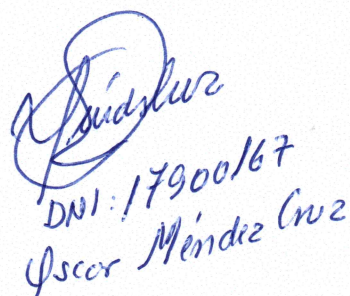 DNI: 17900167
Oscar Méndez Cruz